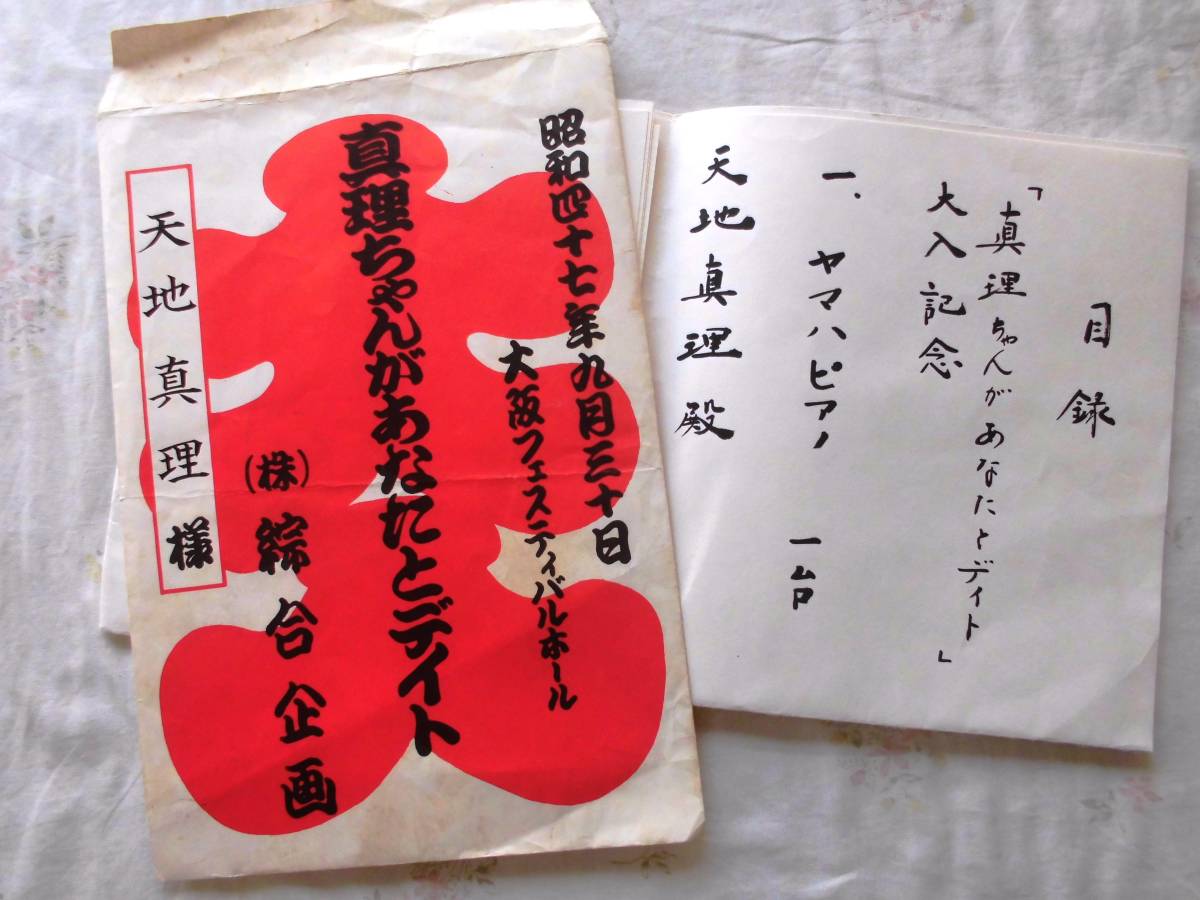 昭和四十七年九月三十日
大阪フェスティバルホール
真理ちゃんがあなたとデイト
(株)綜合企画
天地真理様
目録
「真理ちゃんがあなたとデイト」
大入記念
一、ヤマハピアノ 一台
天地真理殿